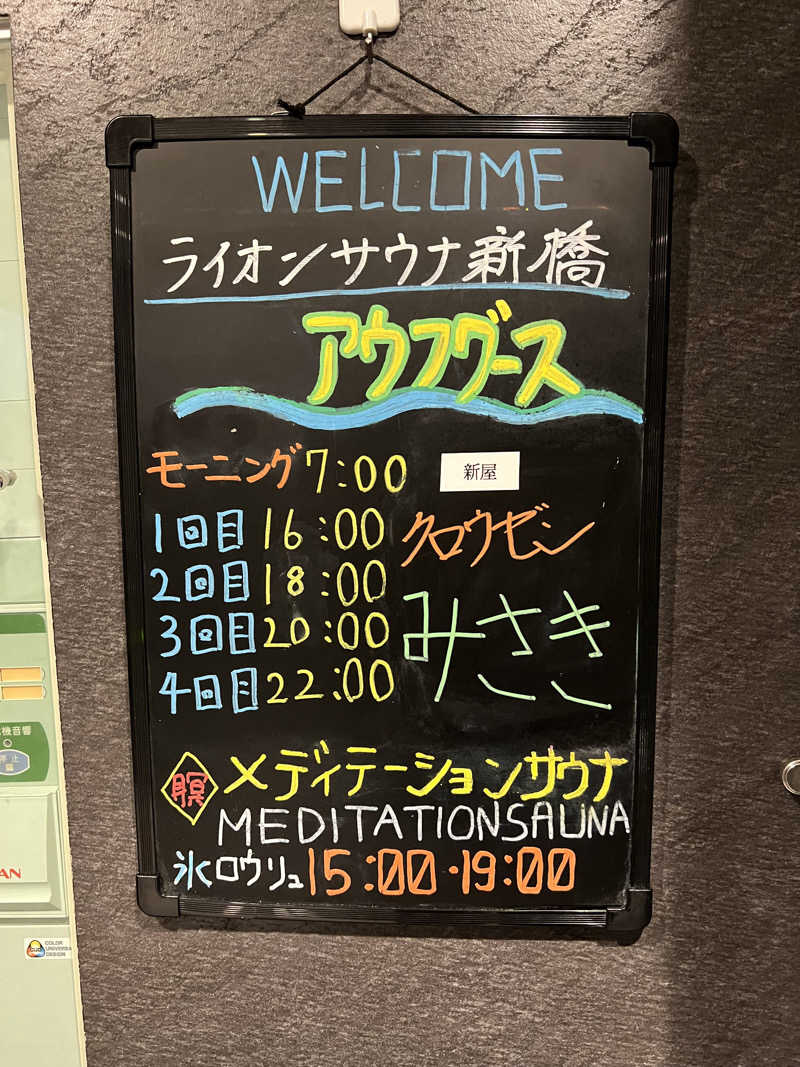 WELCOME
ライオンサウナ新橋
アウフグース
モーニング 7:00 新屋
1回目 16:00 クロウゼン
2回目 18:00
3回目 20:00 みさき
4回目 22:00
瞑 メディテーションサウナ
MEDITATIONSAUNA
氷ロウリュ 15:00・19:00
機音響
停止
AN
CUD
COLOR
UNIVERSA
DESIGN